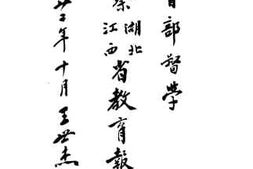 部督學
湖北
江西
省教育報
廿二年十月王世杰